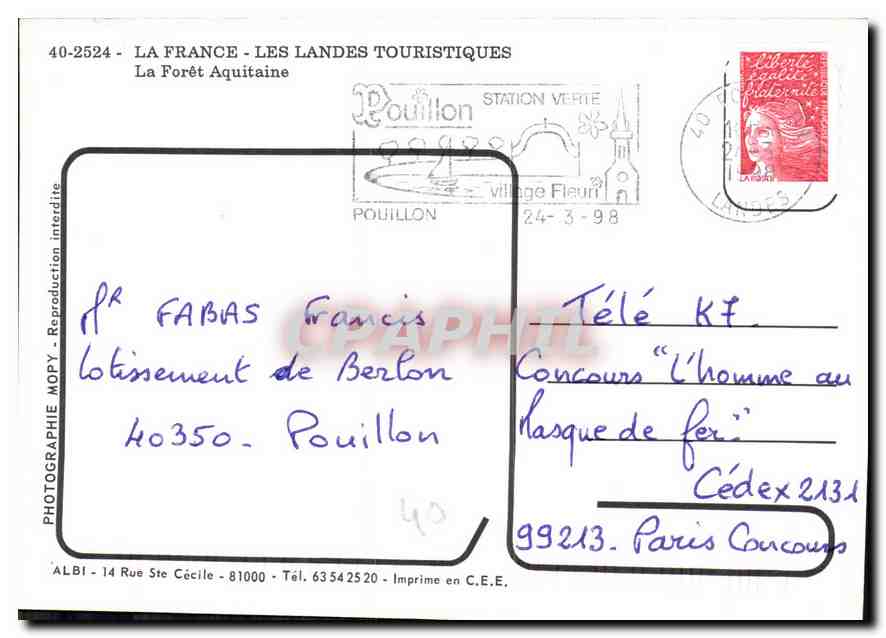 40-2524 - LA FRANCE - LES LANDES TOURISTIQUES
La Forêt Aquitaine
Pouillon
STATION VERTE
village Fleuri
POUILLON 24- 3 - 98
liberté
égalité
fraternité
RÉPUBLIQUE FRANÇAISE
LA POSTE
40
LANDES
PHOTOGRAPHIE MOPY - Reproduction interdite
CPAPHIL
Mr FABAS Francis
Lotissement de Berlon
40350 - Pouillon
40
Télé K7.
Concours "L'homme au
Masque de fer".
Cédex 2131
99213. Paris Concours
ALBI - 14 Rue Ste Cécile - 81000 - Tél. 63 54 25 20 - Imprime en C.E.E.